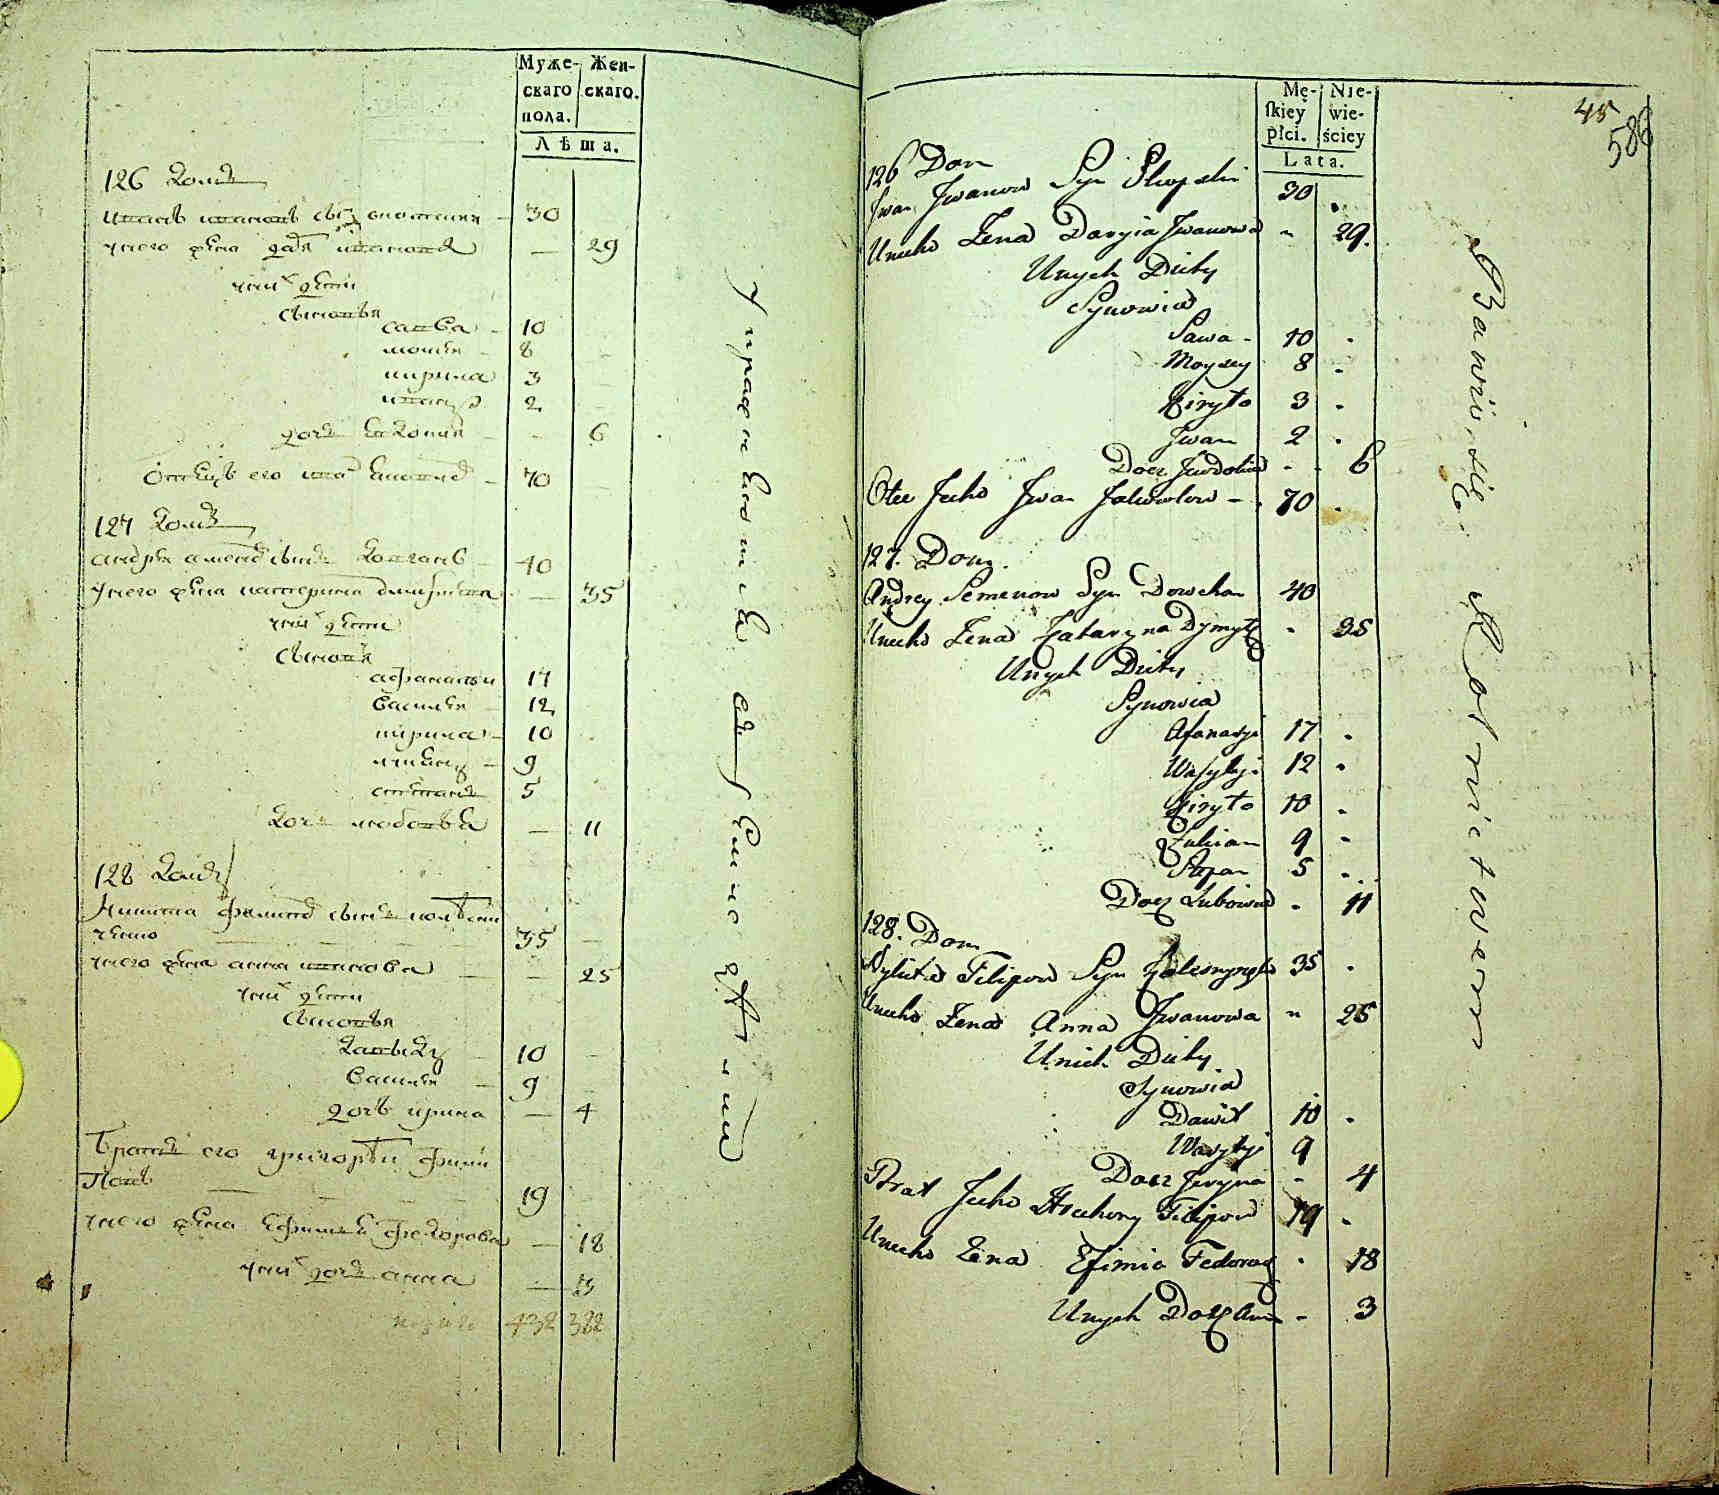 Муже-
скаго
пола.
Жен-
скаго.
Лѣта.
126 домъ
иванъ ивановъ сынъ 30
у него жена дарья иванова 29
у них дети
сыновья
савва 10
мойсей 8
кирила 3
иванъ 2
дочь евдокия 6
отецъ его иванъ 70
127 домъ
андрей семеновъ сынъ довганъ 40
у него жена катерина дмитриева 35
у них дети
сыновья
афанасий 17
василей 12
кирила 10
9
степанъ 5
дочь любовва 11
128 домъ
Никита филиповъ сынъ
35
у него жена анна иванова 25
у них дети
сыновья
давыдъ 10
василей 9
дочь ирина 4
Братъ его григорей фили
повъ 19
у него жена ефимия федорова 18
у них дочь анна 3
432 382
упражняются в земледелии
Mę-
skiey
płci.
Nie-
wie-
ściey
Lata.
45
586
126 Dom
Iwan Iwanow Syn 30
Unieho Żena Daryia Iwanowa 29.
Unych Dity
Synowia
Sawa 10
Moysey 8
Kiryło 3
Iwan 2
Docz Jewdokia 6
Otec Jeho Iwan 70
127. Dom.
Andrey Semenow Syn Dowchan 40
Unieho Żena Katarzyna Dymytr 35
Unych Dity
Synowia
Afanasyi 17
Wasylyi 12
Kiryło 10
Julian 9
Stepan 5
Docz Lubowia 11
128. Dom
Nykita Filipow Syn 35
Unieho Żena Anna Iwanowa 25
Unich Dity
Synowia
Dawid 10
Wasylyi 9
Docz Jeryna 4
Brat Jeho Hrehory Filipow 19
Unieho Żena Efimia Fedorow 18
Unych Docz Ann 3
Bawią się Rolnictwem